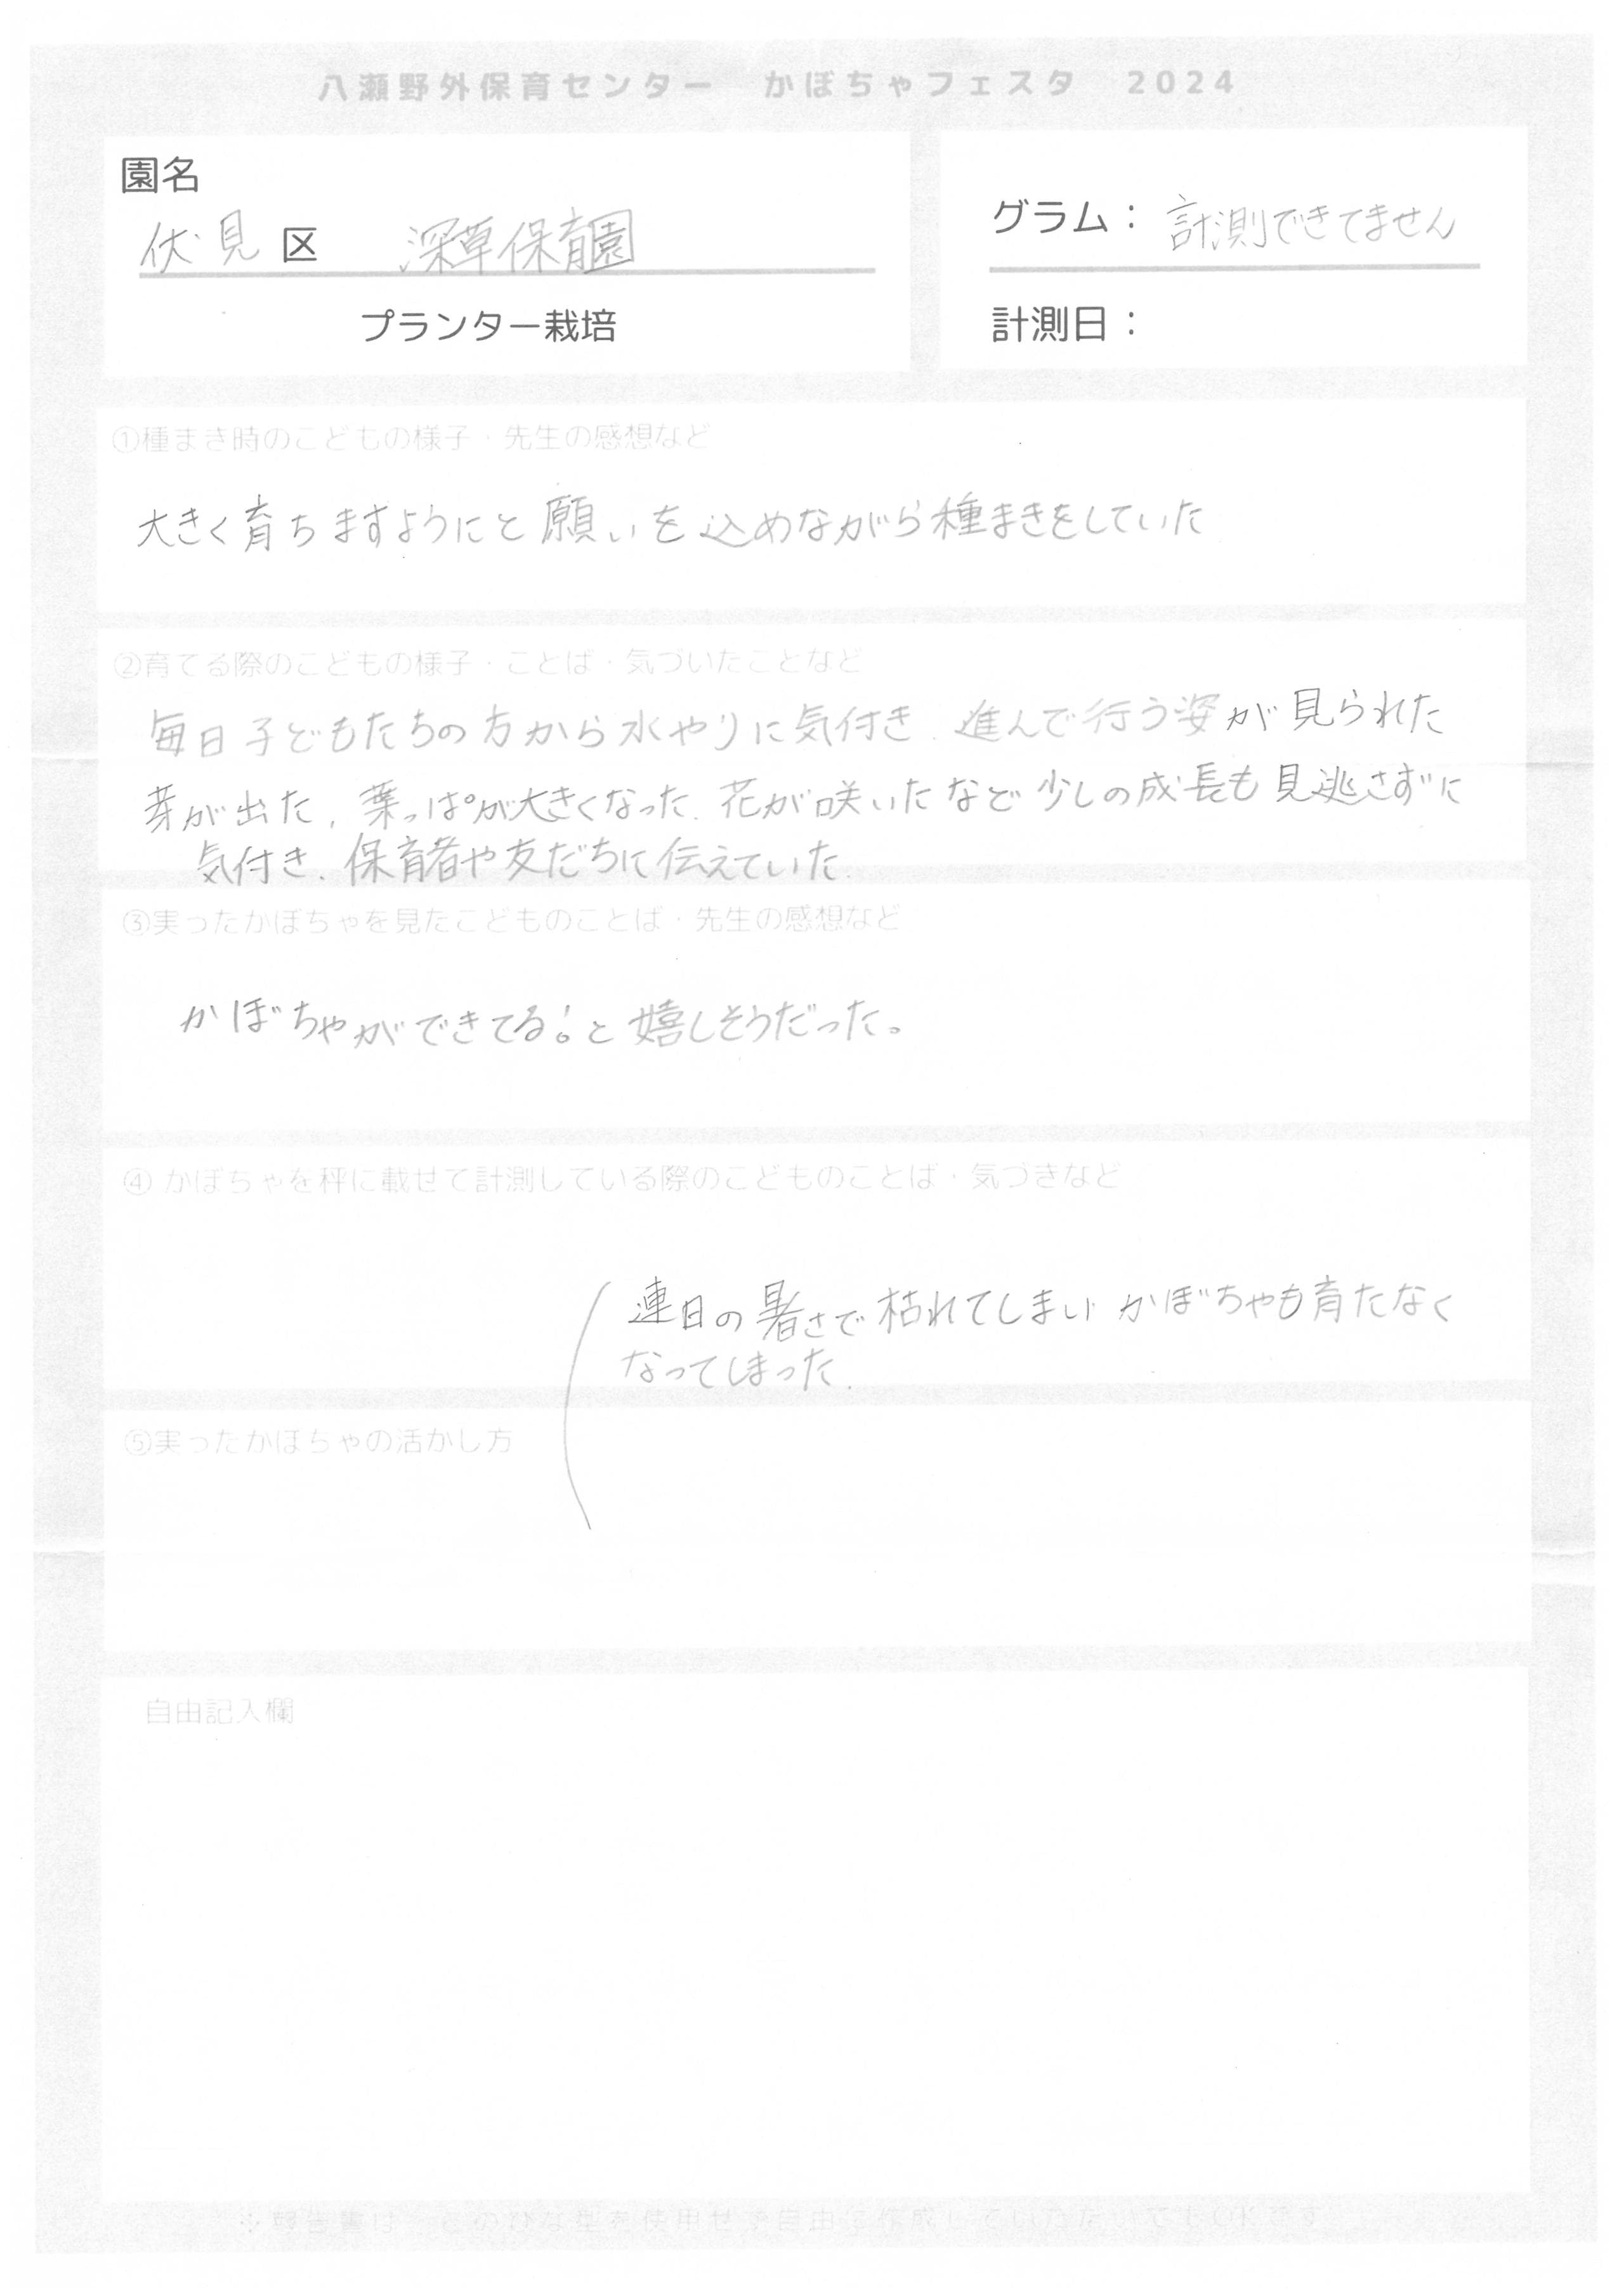 八瀬野外保育センター かぼちゃフェスタ 2024
園名
伏見区 深草保育園
プランター栽培
グラム：計測できてません
計測日：
①種まき時のこどもの様子・先生の感想など
大きく育ちますようにと願いを込めながら種まきをしていた
②育てる際のこどもの様子・ことば・気づいたことなど
毎日子どもたちの方から水やりに気付き、進んで行う姿が見られた
芽が出た、葉っぱが大きくなった、花が咲いたなど少しの成長も見逃さずに
気付き、保育者や友だちに伝えていた。
③実ったかぼちゃを見たこどものことば・先生の感想など
かぼちゃができてる！と嬉しそうだった。
④かぼちゃを秤に載せて計測している際のこどものことば・気づきなど
連日の暑さで枯れてしまい かぼちゃも育たなく
なってしまった。
⑤実ったかぼちゃの活かし方
自由記入欄
※報告書は、このひな型を使用せず自由に作成していただいてもOKです